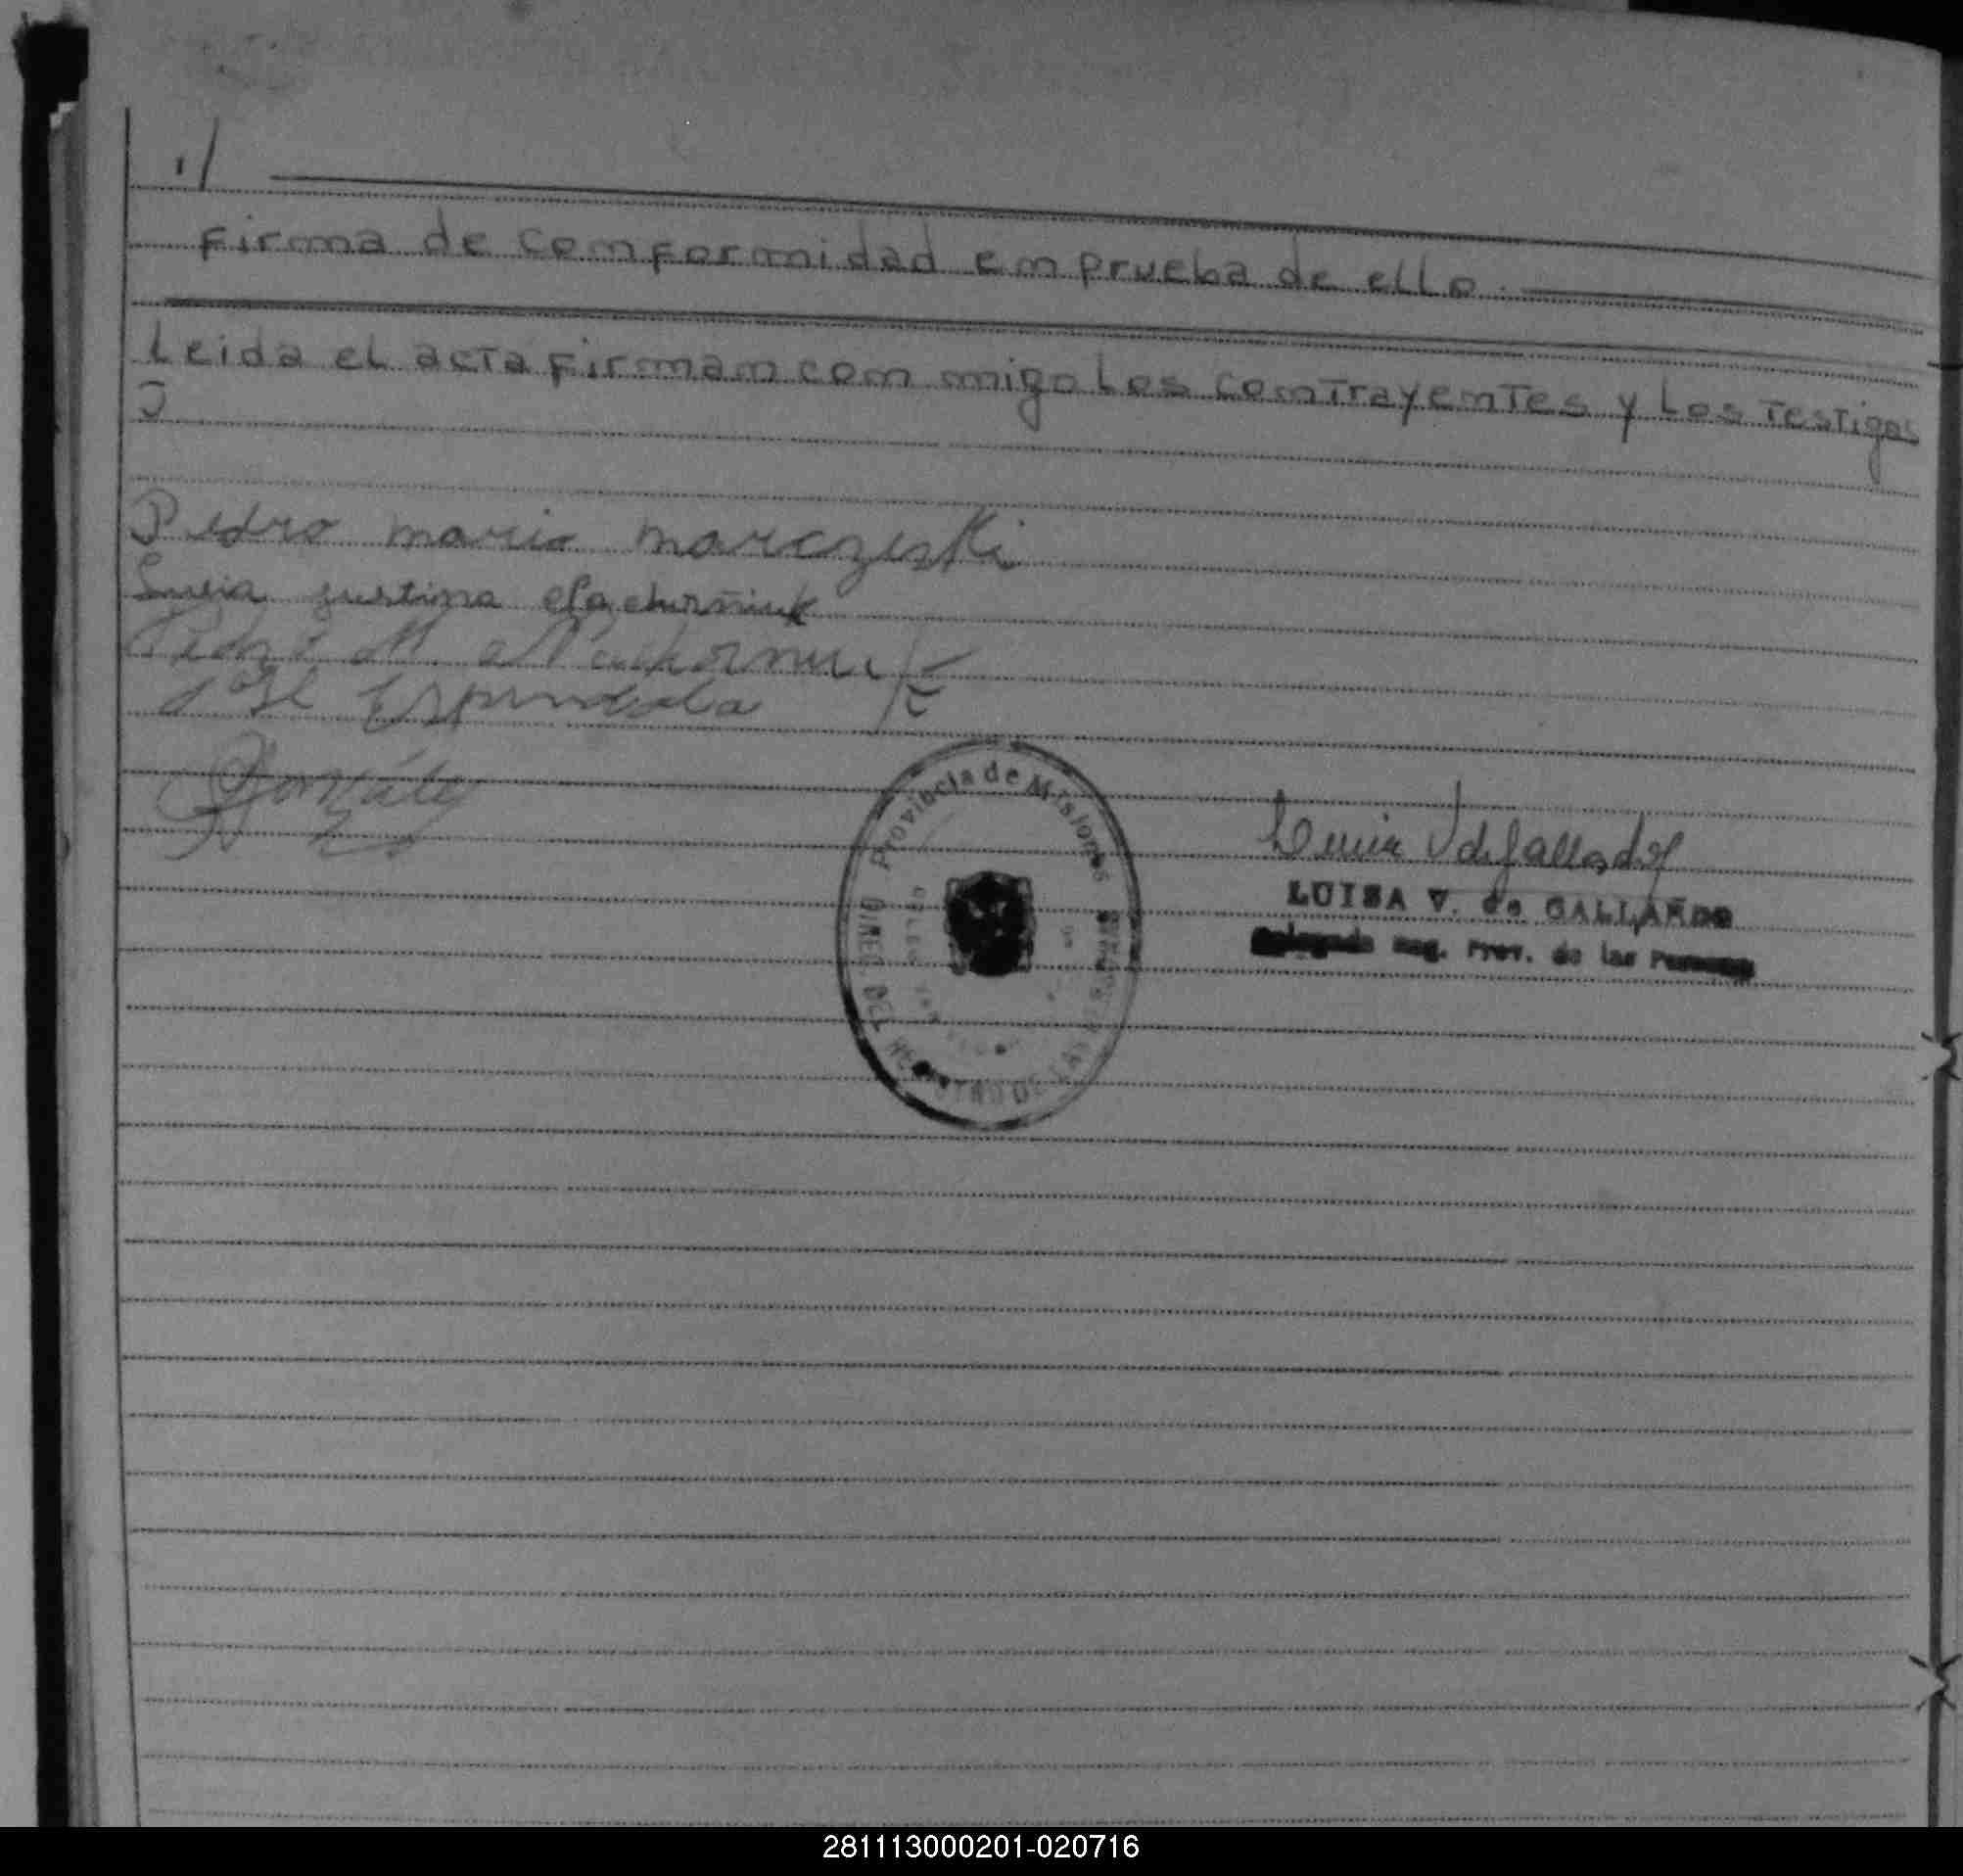 ./
Firma de comformidad em prueba de ello.
Leida el acta Firmam com migo los comtrayemtes y los testigos
Pedro mario marczeski
Lucia justina
Pedro M.
José Espindola
González
Provincia de Misiones
DIREC. DEL REGISTRO DE LAS PERSONAS
LUISA V. de GALLARDO
Delegada Reg. Prov. de las Personas
281113000201-020716